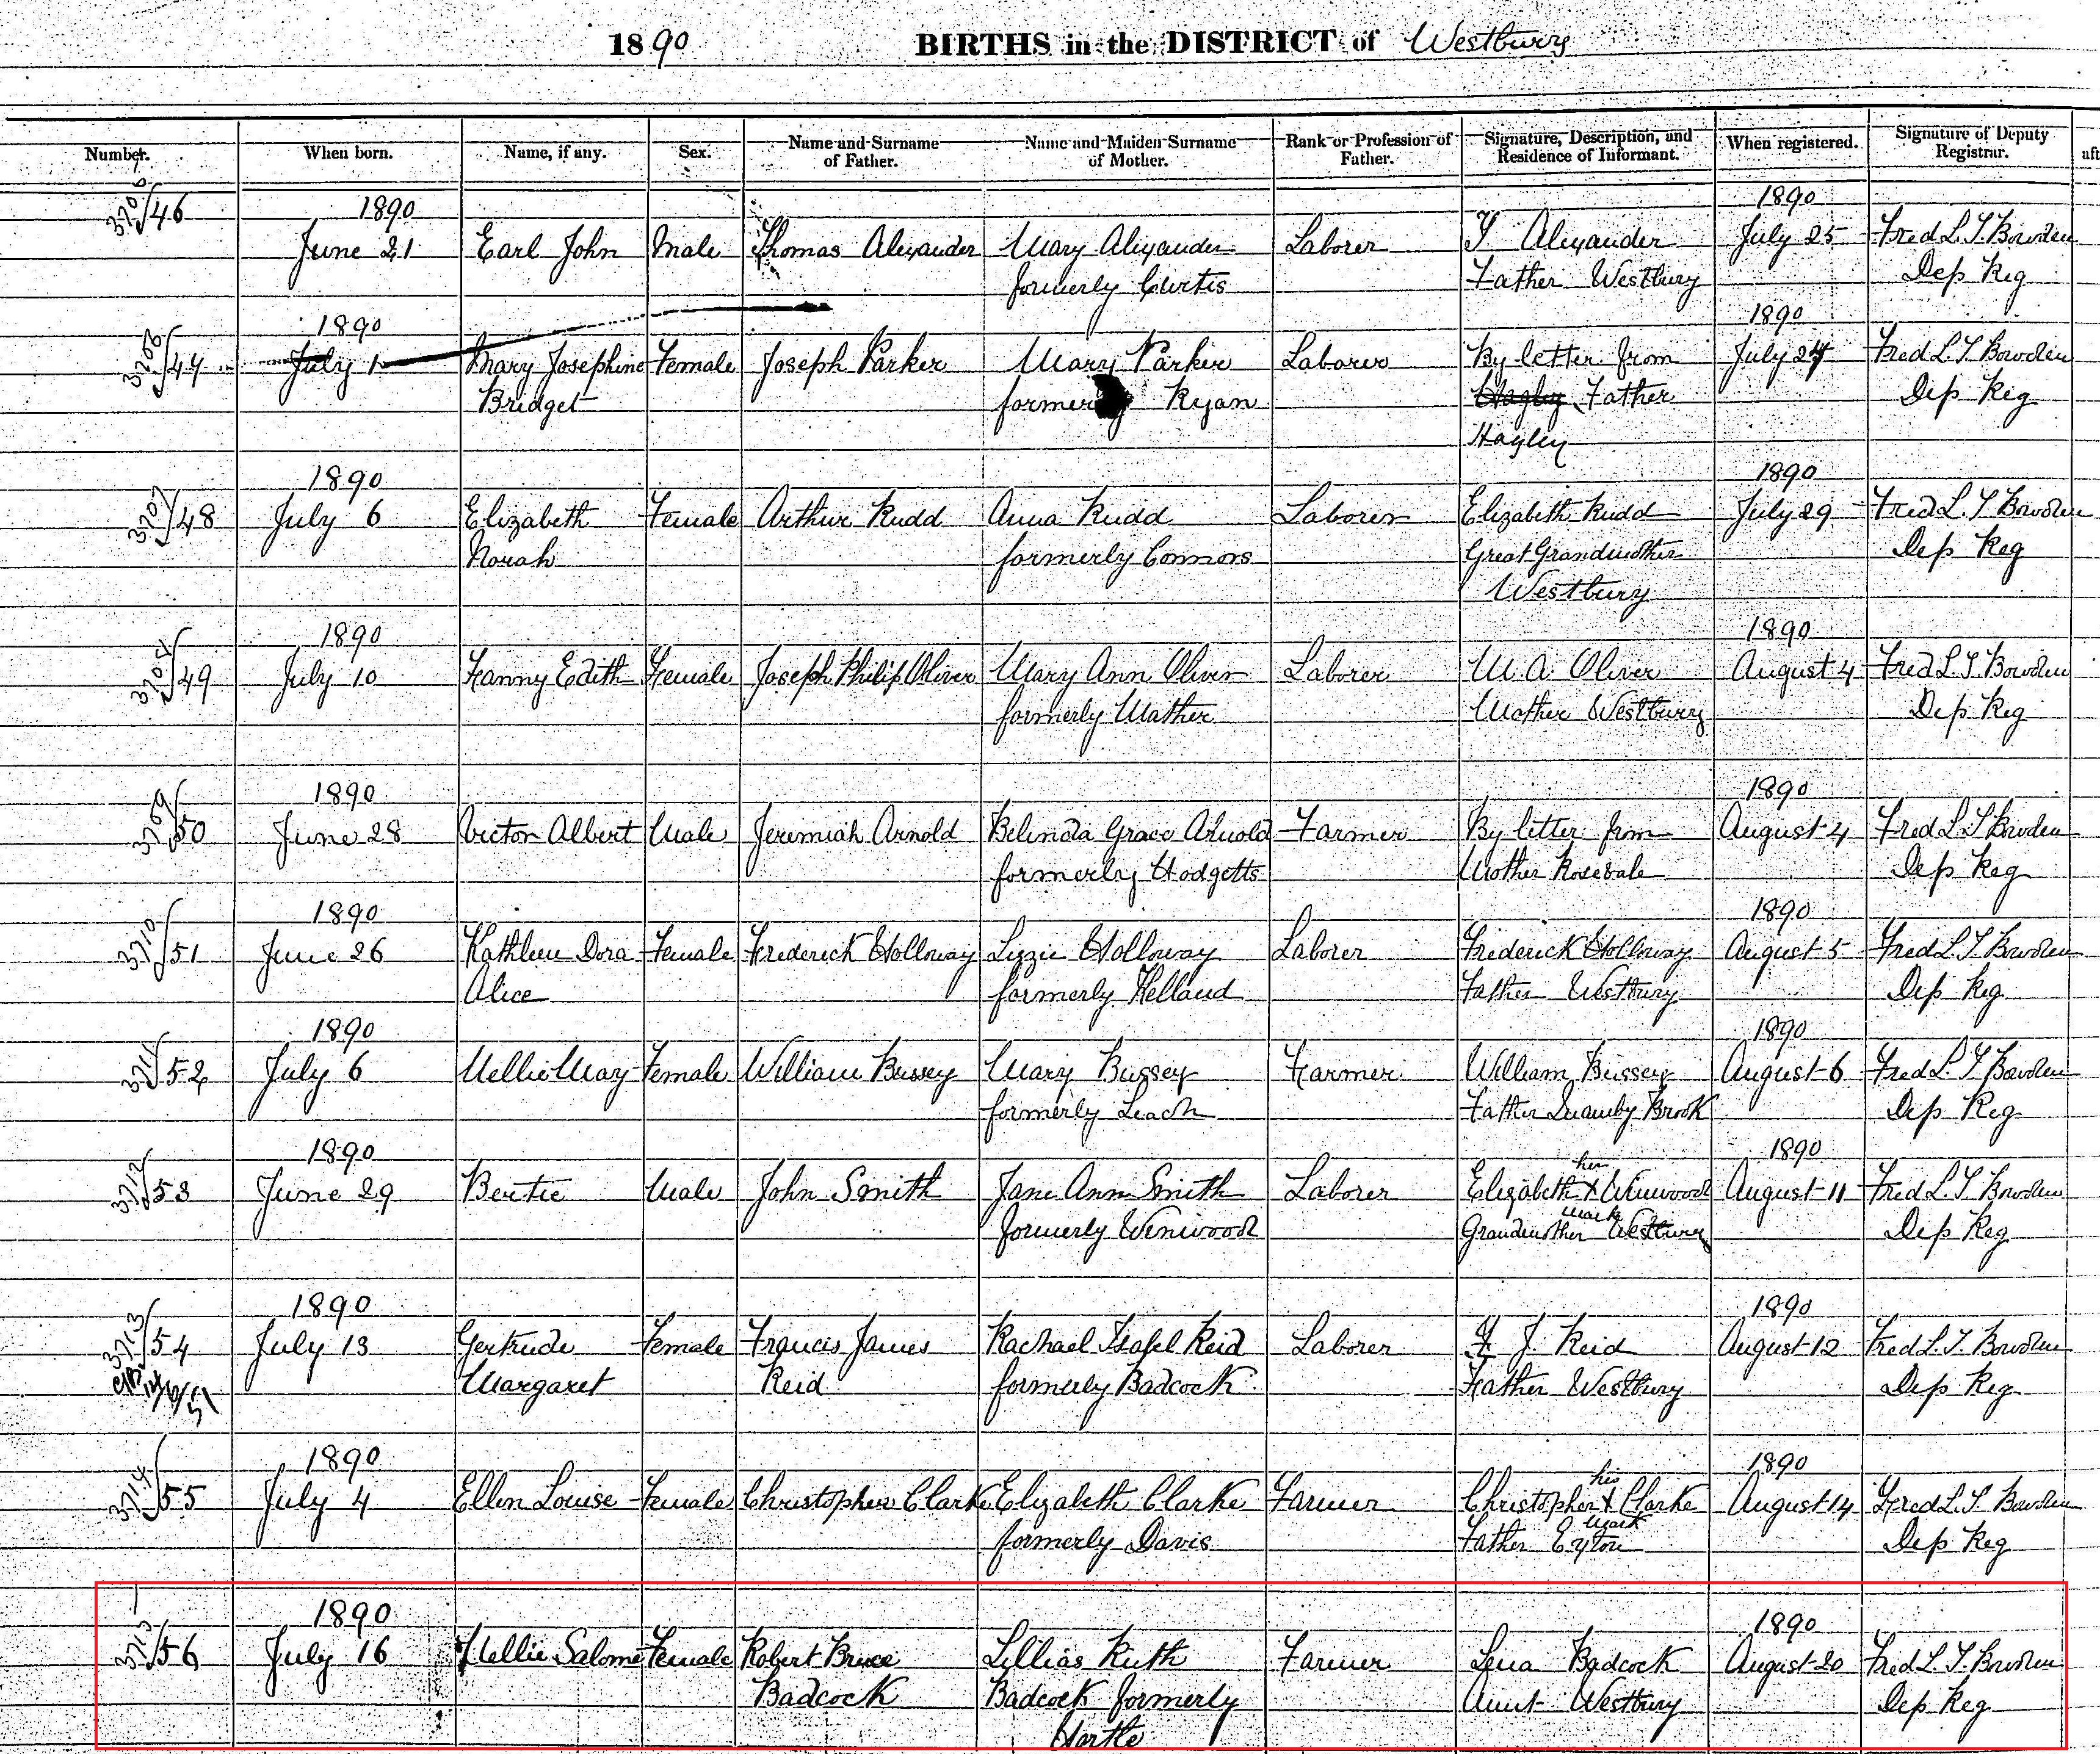 1890 BIRTHS in the DISTRICT of Westbury
Number. When born. Name, if any. Sex. Name and Surname of Father. Name and Maiden Surname of Mother. Rank or Profession of Father. Signature, Description, and Residence of Informant. When registered. Signature of Deputy Registrar. aft
46 1890 1890
June 21 Earl John Male Thomas Alexander Mary Alexander Laborer T Alexander July 25 Fred L. T. Bowden
formerly Curtis Father Westbury Dep Reg
3706 47 1890 1890
July 1 Mary Josephine Female Joseph Parker Mary Parker Laborer By letter from July 27 Fred L. T. Bowden
Bridget formerly Ryan Hagley Father Dep Reg
Hagley
3707 48 1890 1890
July 6 Elizabeth Female Arthur Rudd Anna Rudd Laborer Elizabeth Rudd July 29 Fred L. T Bowden
Norah formerly Connors Great Grandmother Dep Reg
Westbury
49 1890 1890
July 10 Fanny Edith Female Joseph Philip Oliver Mary Ann Oliver Laborer M A Oliver August 4 Fred L. T Bowden
formerly Mather Mother Westbury Dep Reg
3709 50 1890 1890
June 28 Victor Albert Male Jeremiah Arnold Belinda Grace Arnold Farmer By letter from August 4 Fred L T Bowden
formerly Hodgetts Mother Rosevale Dep Reg
3710 51 1890 1890
June 26 Kathleen Dora Female Frederick Holloway Lizzie Holloway Laborer Frederick Holloway August 5 Fred L. T Bowden
Alice formerly Kelland Father Westbury Dep Reg
3711 52 1890 1890
July 6 Nellie May Female William Bussey Mary Bussey Farmer William Bussey August 6 Fred L. T Bowden
formerly Leach Father Quamby Brook Dep Reg
3712 53 1890 her 1890
June 29 Bertie Male John Smith Jane Ann Smith Laborer Elizabeth X Winwood August 11 Fred L. T Bowden
mark
formerly Winwood Grandmother Westbury Dep Reg
3713 54 1890 1890
July 13 Gertrude Female Francis James Rachael Isabel Reid Laborer F J Reid August 12 Fred L. T. Bowden
Margaret Reid formerly Badcock Father Westbury Dep Reg
3714 55 1890 his 1890
July 4 Ellen Louise Female Christopher Clarke Elizabeth Clarke Farmer Christopher X Clarke August 14 Fred L. T. Bowden
mark
formerly Davis Father Exton Dep Reg
56 1890 1890
July 16 Nellie Salome Female Robert Bruce Lillias Ruth Farmer Lena Badcock August 20 Fred L. T. Bowden
Badcock Badcock formerly Aunt Westbury Dep Reg
Hortle